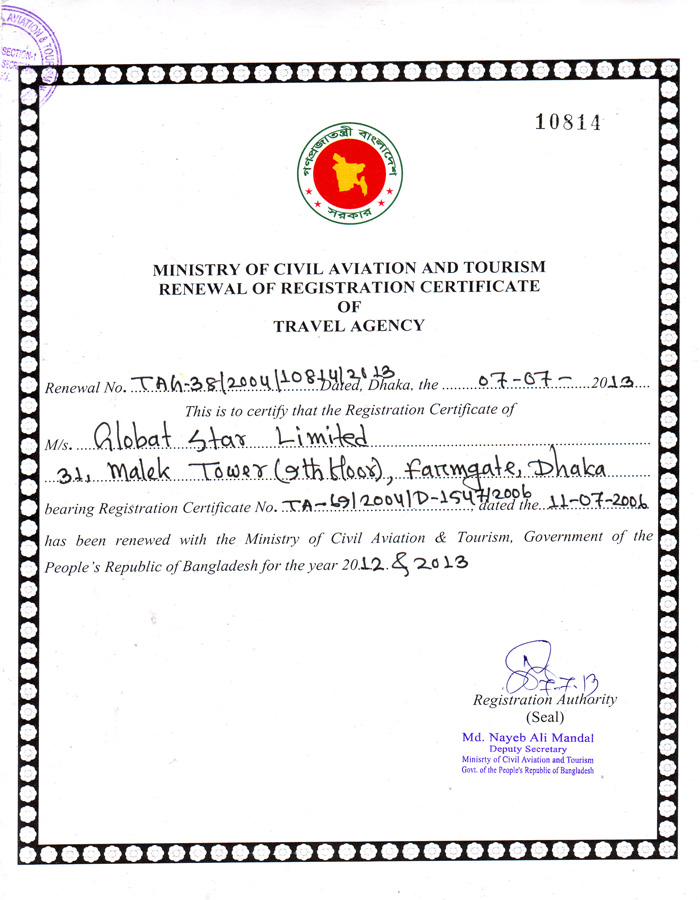 AVIATION & TOURISM
SECTION-1
10814
গণপ্রজাতন্ত্রী বাংলাদেশ
সরকার
MINISTRY OF CIVIL AVIATION AND TOURISM
RENEWAL OF REGISTRATION CERTIFICATE
OF
TRAVEL AGENCY
Renewal No. TAG-38/2004/10814/2013 Dated, Dhaka, the 07-07- 2013
This is to certify that the Registration Certificate of
M/s. Globat Star Limited
31, Malek Tower (9th floor), Farmgate, Dhaka
bearing Registration Certificate No. TA-69/2004/D-1547/2006, dated the 11-07-2006
has been renewed with the Ministry of Civil Aviation & Tourism, Government of the
People's Republic of Bangladesh for the year 2012 & 2013
7-7-13
Registration Authority
(Seal)
Md. Nayeb Ali Mandal
Deputy Secretary
Minisrty of Civil Aviation and Tourism
Govt. of the People's Republic of Bangladesh